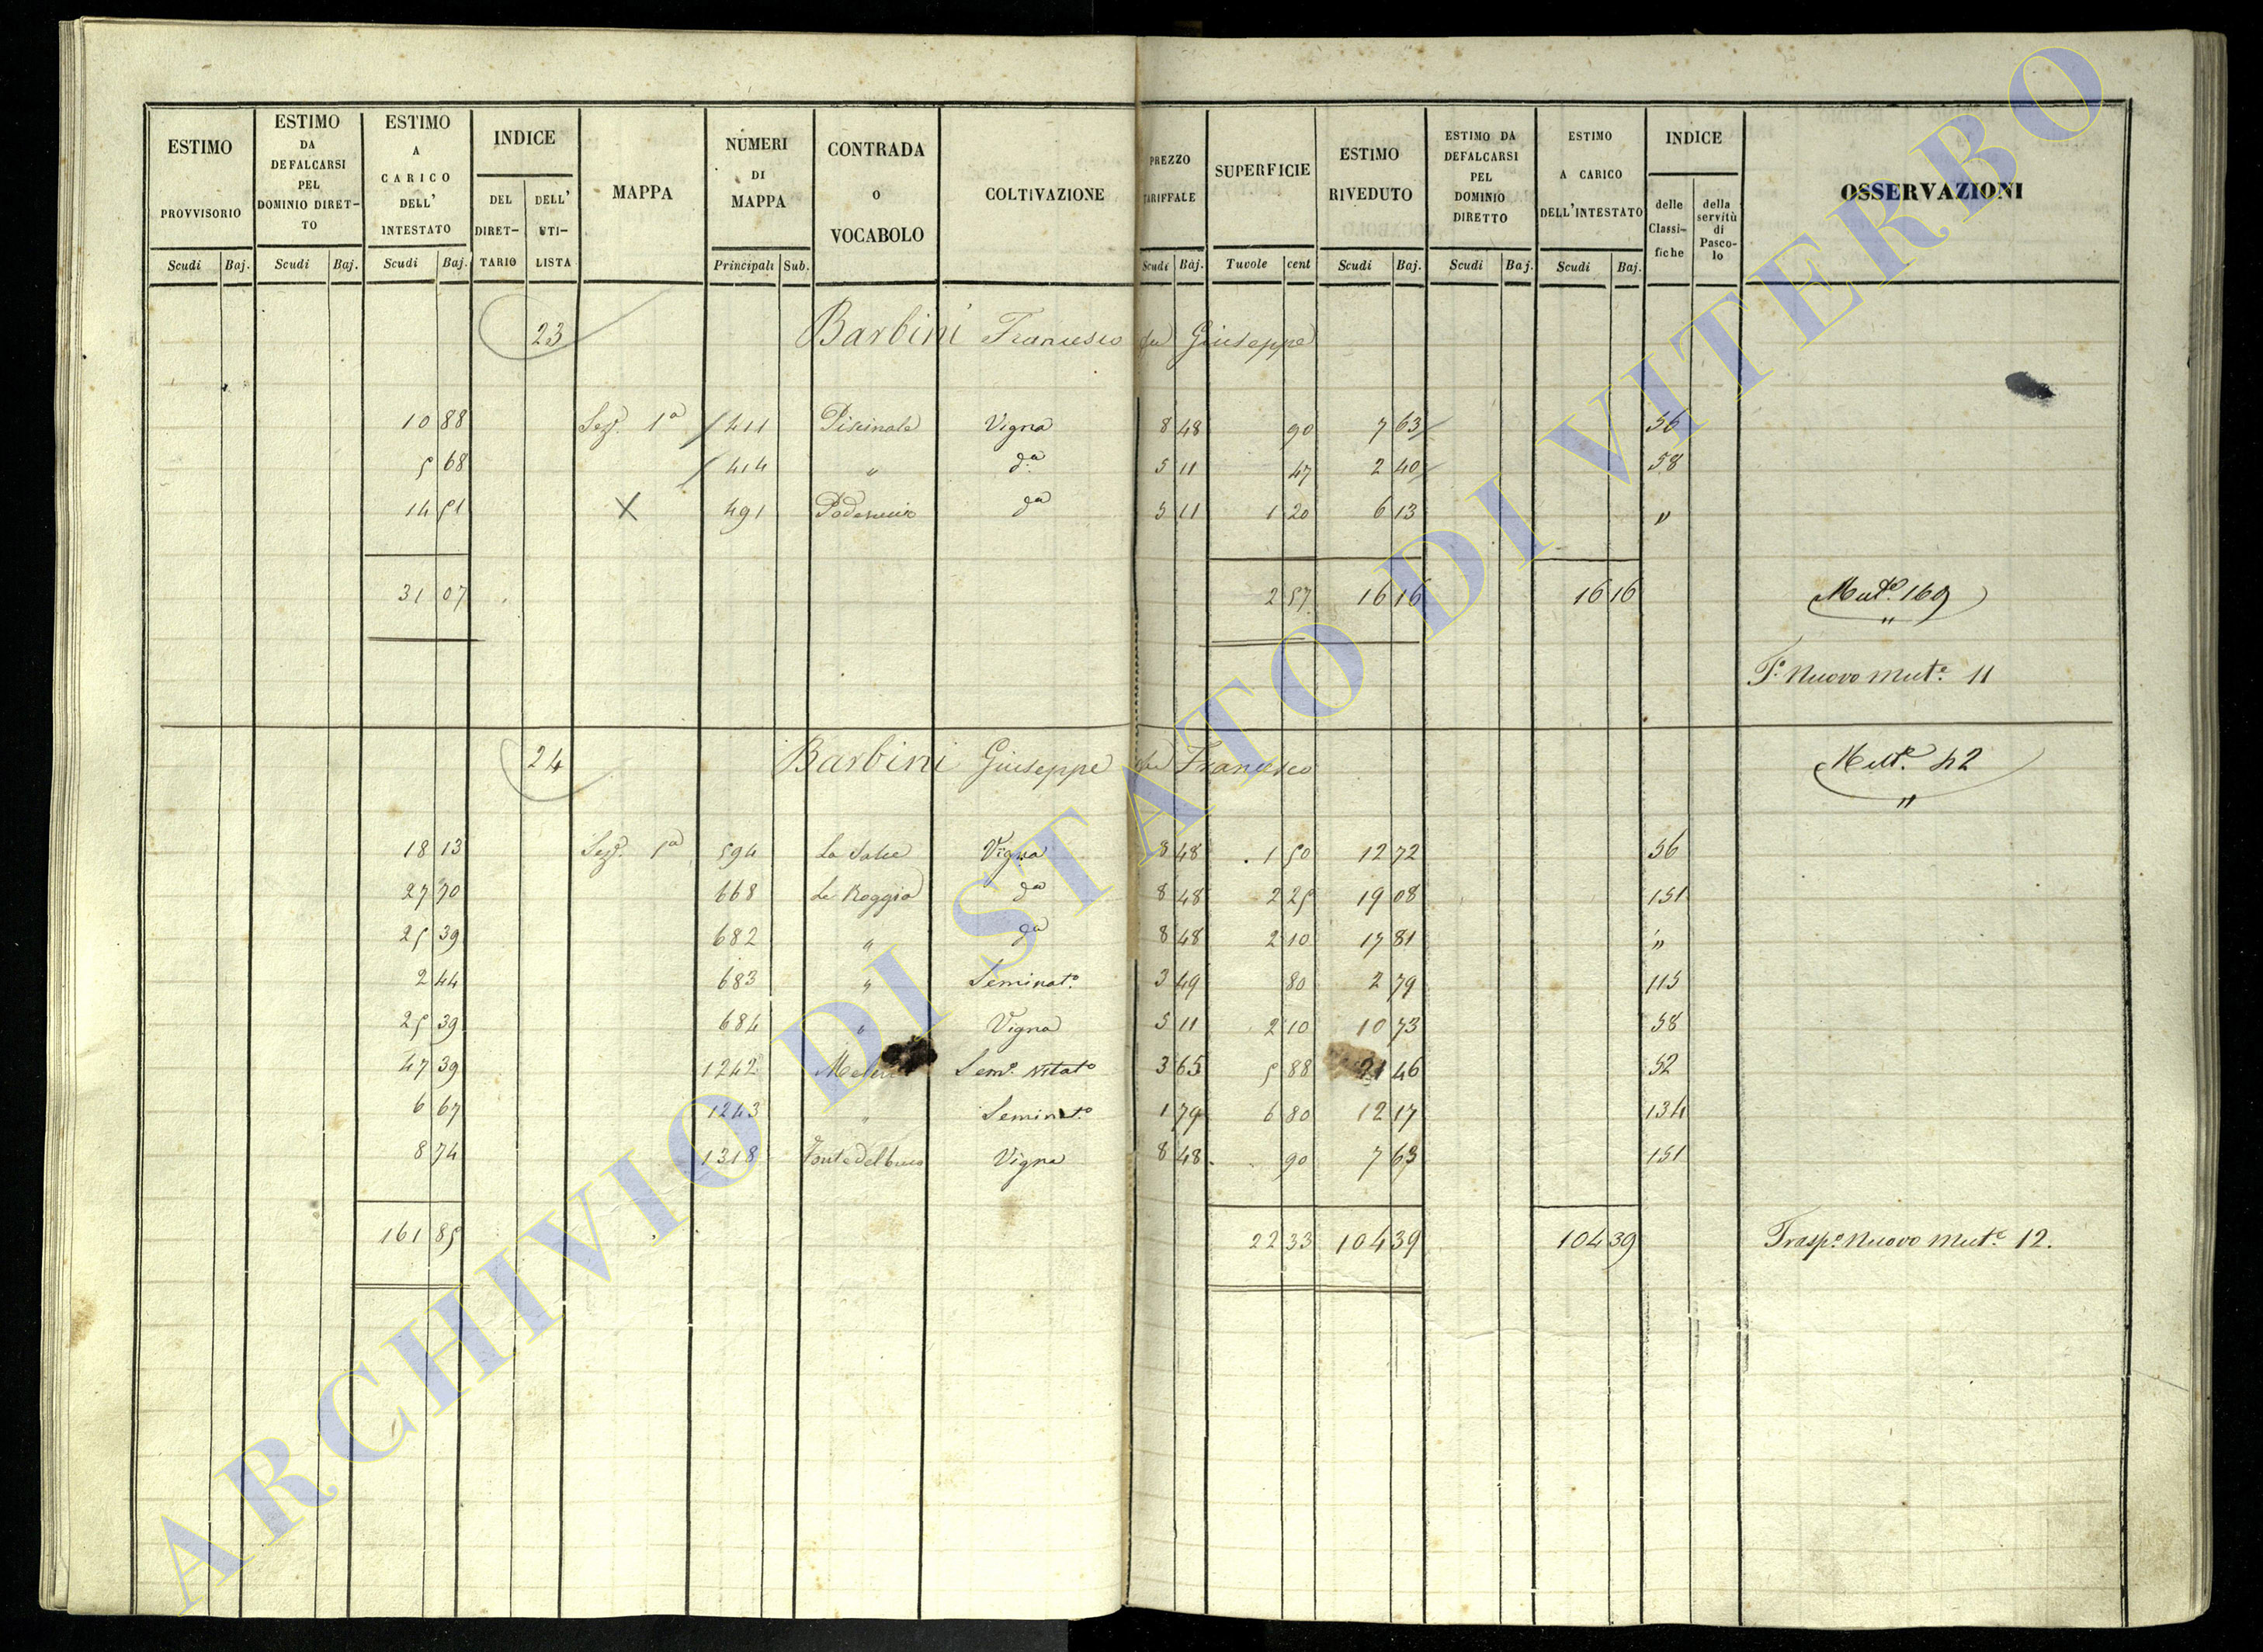 ESTIMO PROVVISORIO
ESTIMO DA DEFALCARSI PEL DOMINIO DIRET-TO
ESTIMO A CARICO DELL' INTESTATO
INDICE
DEL DIRET-TARIO
DELL' UTI-LISTA
MAPPA
NUMERI DI MAPPA
CONTRADA o VOCABOLO
COLTIVAZIONE
PREZZO TARIFFALE
SUPERFICIE
ESTIMO RIVEDUTO
ESTIMO DA DEFALCARSI PEL DOMINIO DIRETTO
ESTIMO A CARICO DELL'INTESTATO
INDICE
delle Classi-fiche
della servitù di Pasco-lo
OSSERVAZIONI
Scudi Baj. Scudi Baj. Scudi Baj. Principali Sub. Scudi Baj. Tavole cent Scudi Baj. Scudi Baj. Scudi Baj.
23 Barbini Francesco fu Giuseppe
10 88 Sez. 1a 411 Piscinale Vigna 8 48 90 7 63 56
5 68 414 " da 5 11 47 2 40 58
14 51 X 491 da 5 11 1 20 6 13 "
31 07 2 57 16 16 16 16 Mut.e 169
T.o Nuovo Mut.e 11
24 Barbini Giuseppe fu Francesco Mut.e 42
18 13 Sez. 1a 594 Vigna 8 48 1 50 12 72 56
27 70 668 Le Roggia da 8 48 2 25 19 08 151
25 39 682 " da 8 48 2 10 17 81 "
2 44 683 " Seminat.o 3 49 80 2 79 115
25 39 684 " Vigna 5 11 2 10 10 73 58
47 39 1242 Sem.o vitato 3 65 5 88 21 46 52
6 67 1243 " Seminat.o 1 79 6 80 12 17 134
8 74 1318 Vigna 8 48 90 7 63 151
161 85 22 33 104 39 104 39 Trasp.o Nuovo Mut.e 12.
ARCHIVIO DI STATO DI VITERBO